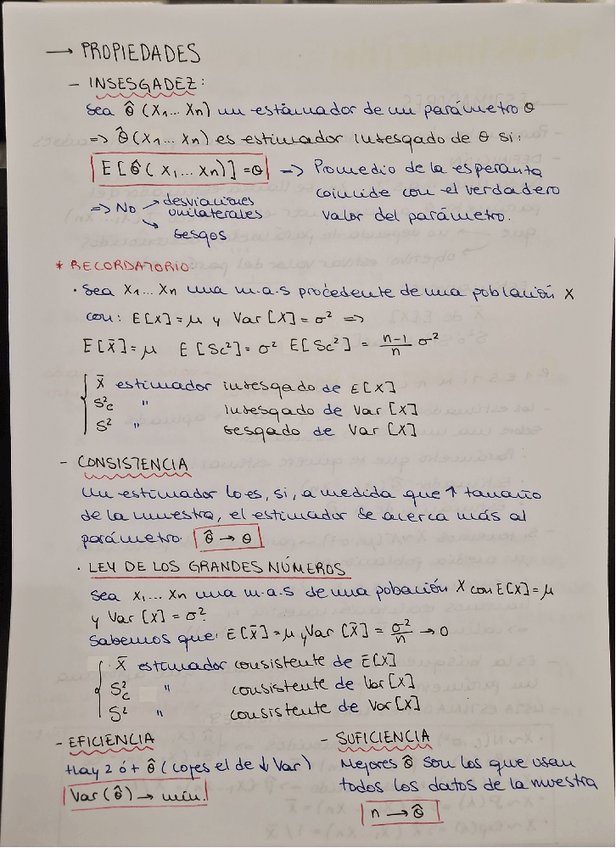 → PROPIEDADES
- INSESGADEZ:
Sea θ̂ (X₁... Xn) un estimador de un parámetro θ
=> θ̂ (X₁... Xn) es estimador insesgado de θ si:
E[θ̂ (X₁... Xn)] = θ → Promedio de la esperanza
coincide con el verdadero
valor del parámetro.
=> No → desviaciones
unilaterales
→ sesgos
* RECORDATORIO:
· Sea X₁... Xn una m.a.s procedente de una población X
con: E[X] = μ y Var [X] = σ² =>
E[X̄] = μ E[Sc²] = σ² E[Sc²] = n-1/n σ²
X̄ estimador insesgado de E[X]
S²c " insesgado de Var [X]
S² " sesgado de Var [X]
- CONSISTENCIA
Un estimador lo es, si, a medida que ↑ tamaño
de la muestra, el estimador se acerca más al
parámetro. θ̂ → θ
· LEY DE LOS GRANDES NÚMEROS
Sea X₁... Xn una m.a.s de una pobación X con E[X] = μ
y Var [X] = σ².
Sabemos que: E[X̄] = μ y Var [X̄] = σ²/n → 0
X̄ estimador consistente de E[X]
S²c " consistente de Var [X]
S² " consistente de Var [X]
- EFICIENCIA
Hay 2 ó + θ̂ (coges el de ↓ Var)
Var (θ̂) → mín.
- SUFICIENCIA
Mejores θ̂ son los que usan
todos los datos de la muestra
n → θ̂